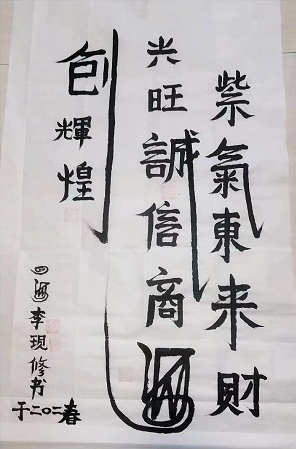 紫氣東来財
兴旺誠信商海
创輝煌
四海李現修书
于二〇二春